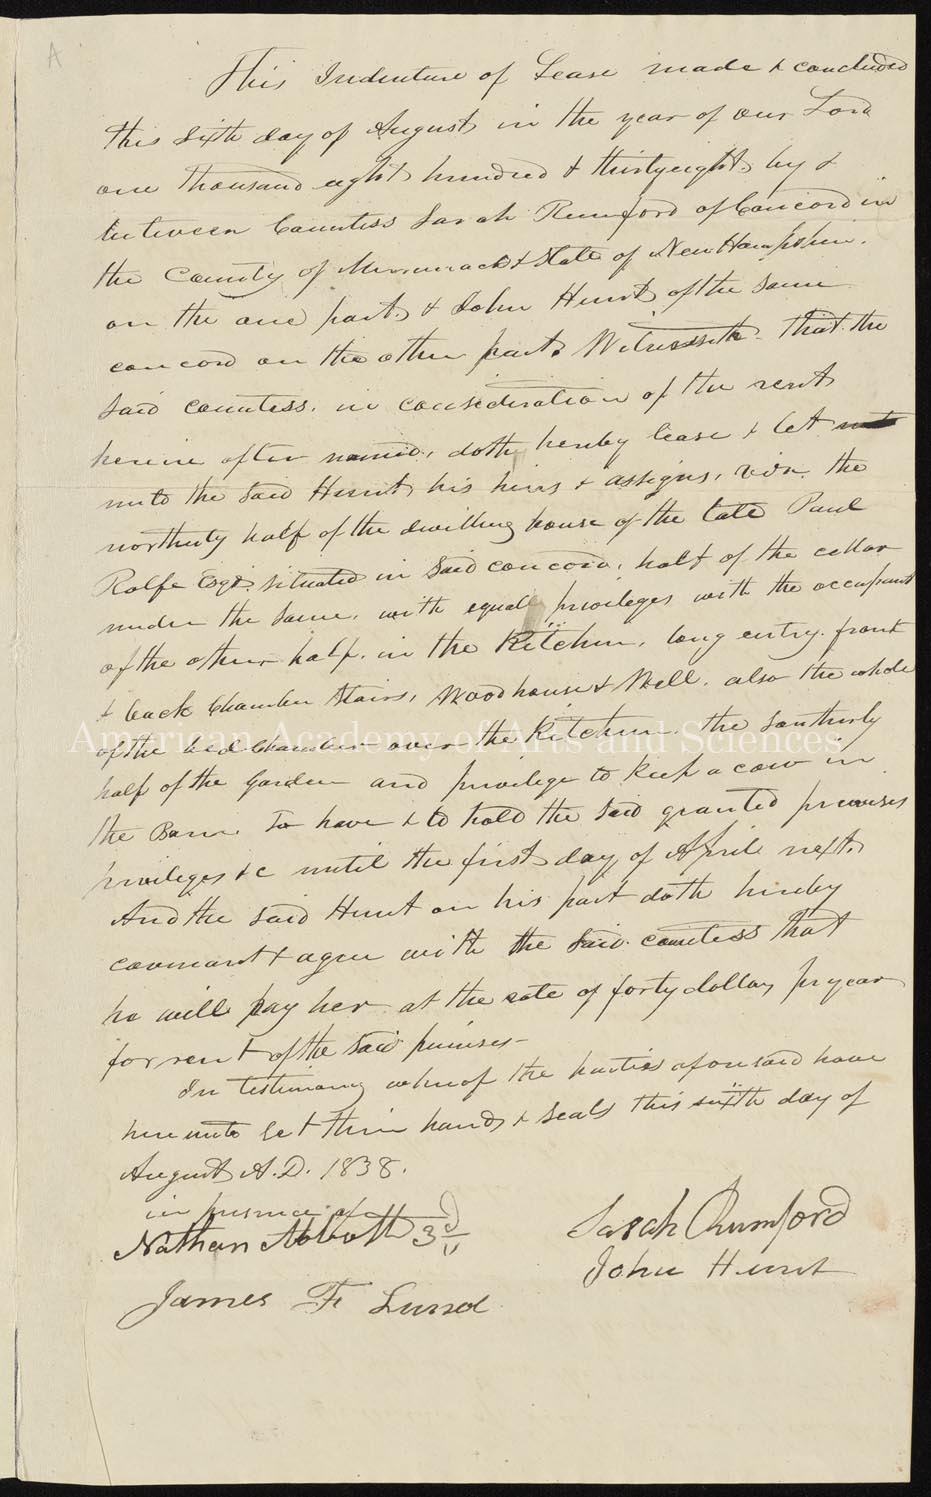 A
This Indenture of Lease made & concluded
this sixth day of August in the year of our Lord
one thousand eight hundred & thirtyeight by &
between Countess Sarah Rumford of Concord in
the County of Merrimack & State of New Hampshire.
on the one part & John Hunt of the same
concord on the other part. Witnesseth. That the
said countess. in consideration of the rent
hereine after named, doth hereby lease & let
unto the said Hunt his heirs & assigns, viz. the
northerly half of the dwelling house of the late Paul
Rolfe Esqr. situated in said concord, half of the cellar
under the same. with equal privileges with the occupant
of the other half. in the Kitchen, long entry. front
& back chamber stairs, Woodhouse & Well. also the whole
of the bed chamber over the Kitchen. the southerly
American Academy of Arts and Sciences
half of the garden and privilege to keep a cow in
the Barn. To have & to hold the said granted premises
privileges &c until the first day of April next.
And the said Hunt on his part doth hereby
covenant & agree with the said countess that
he will pay her at the rate of forty dollars pr year
for rent of the said premises-
In testimony whereof the parties aforesaid have
hereunto set their hands & seals this sixth day of
August A.D. 1838.
in presence of
Nathan Abbott 3d
Sarah Rumford
John Hunt
James F Lund